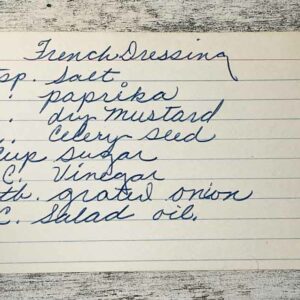 French Dressing
tsp. Salt
. paprika
. dry mustard
. celery seed
cup sugar
C. Vinegar
tb. grated onion
C. Salad oil.